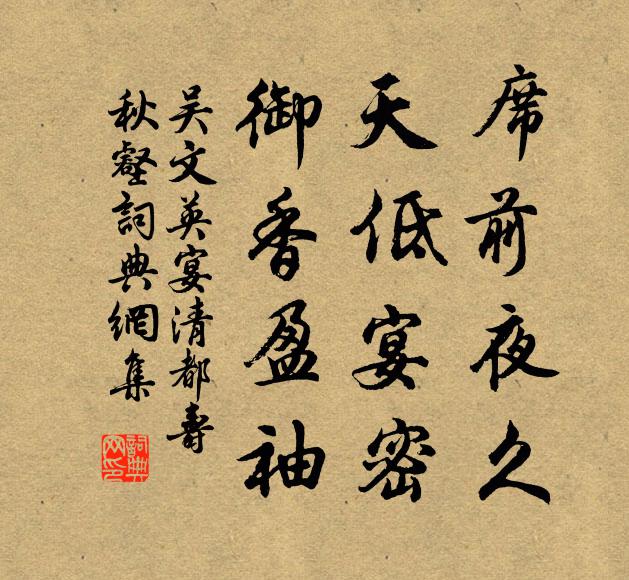 席前夜久
天低宴密
御香盈袖
吴文英宴清都寿
秋壑詞典網集
詞典網印